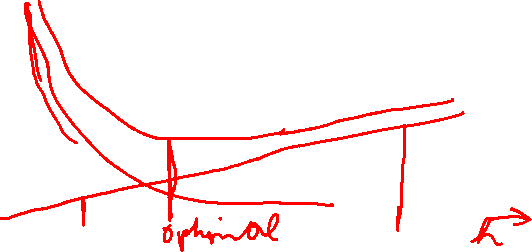 optimal
h